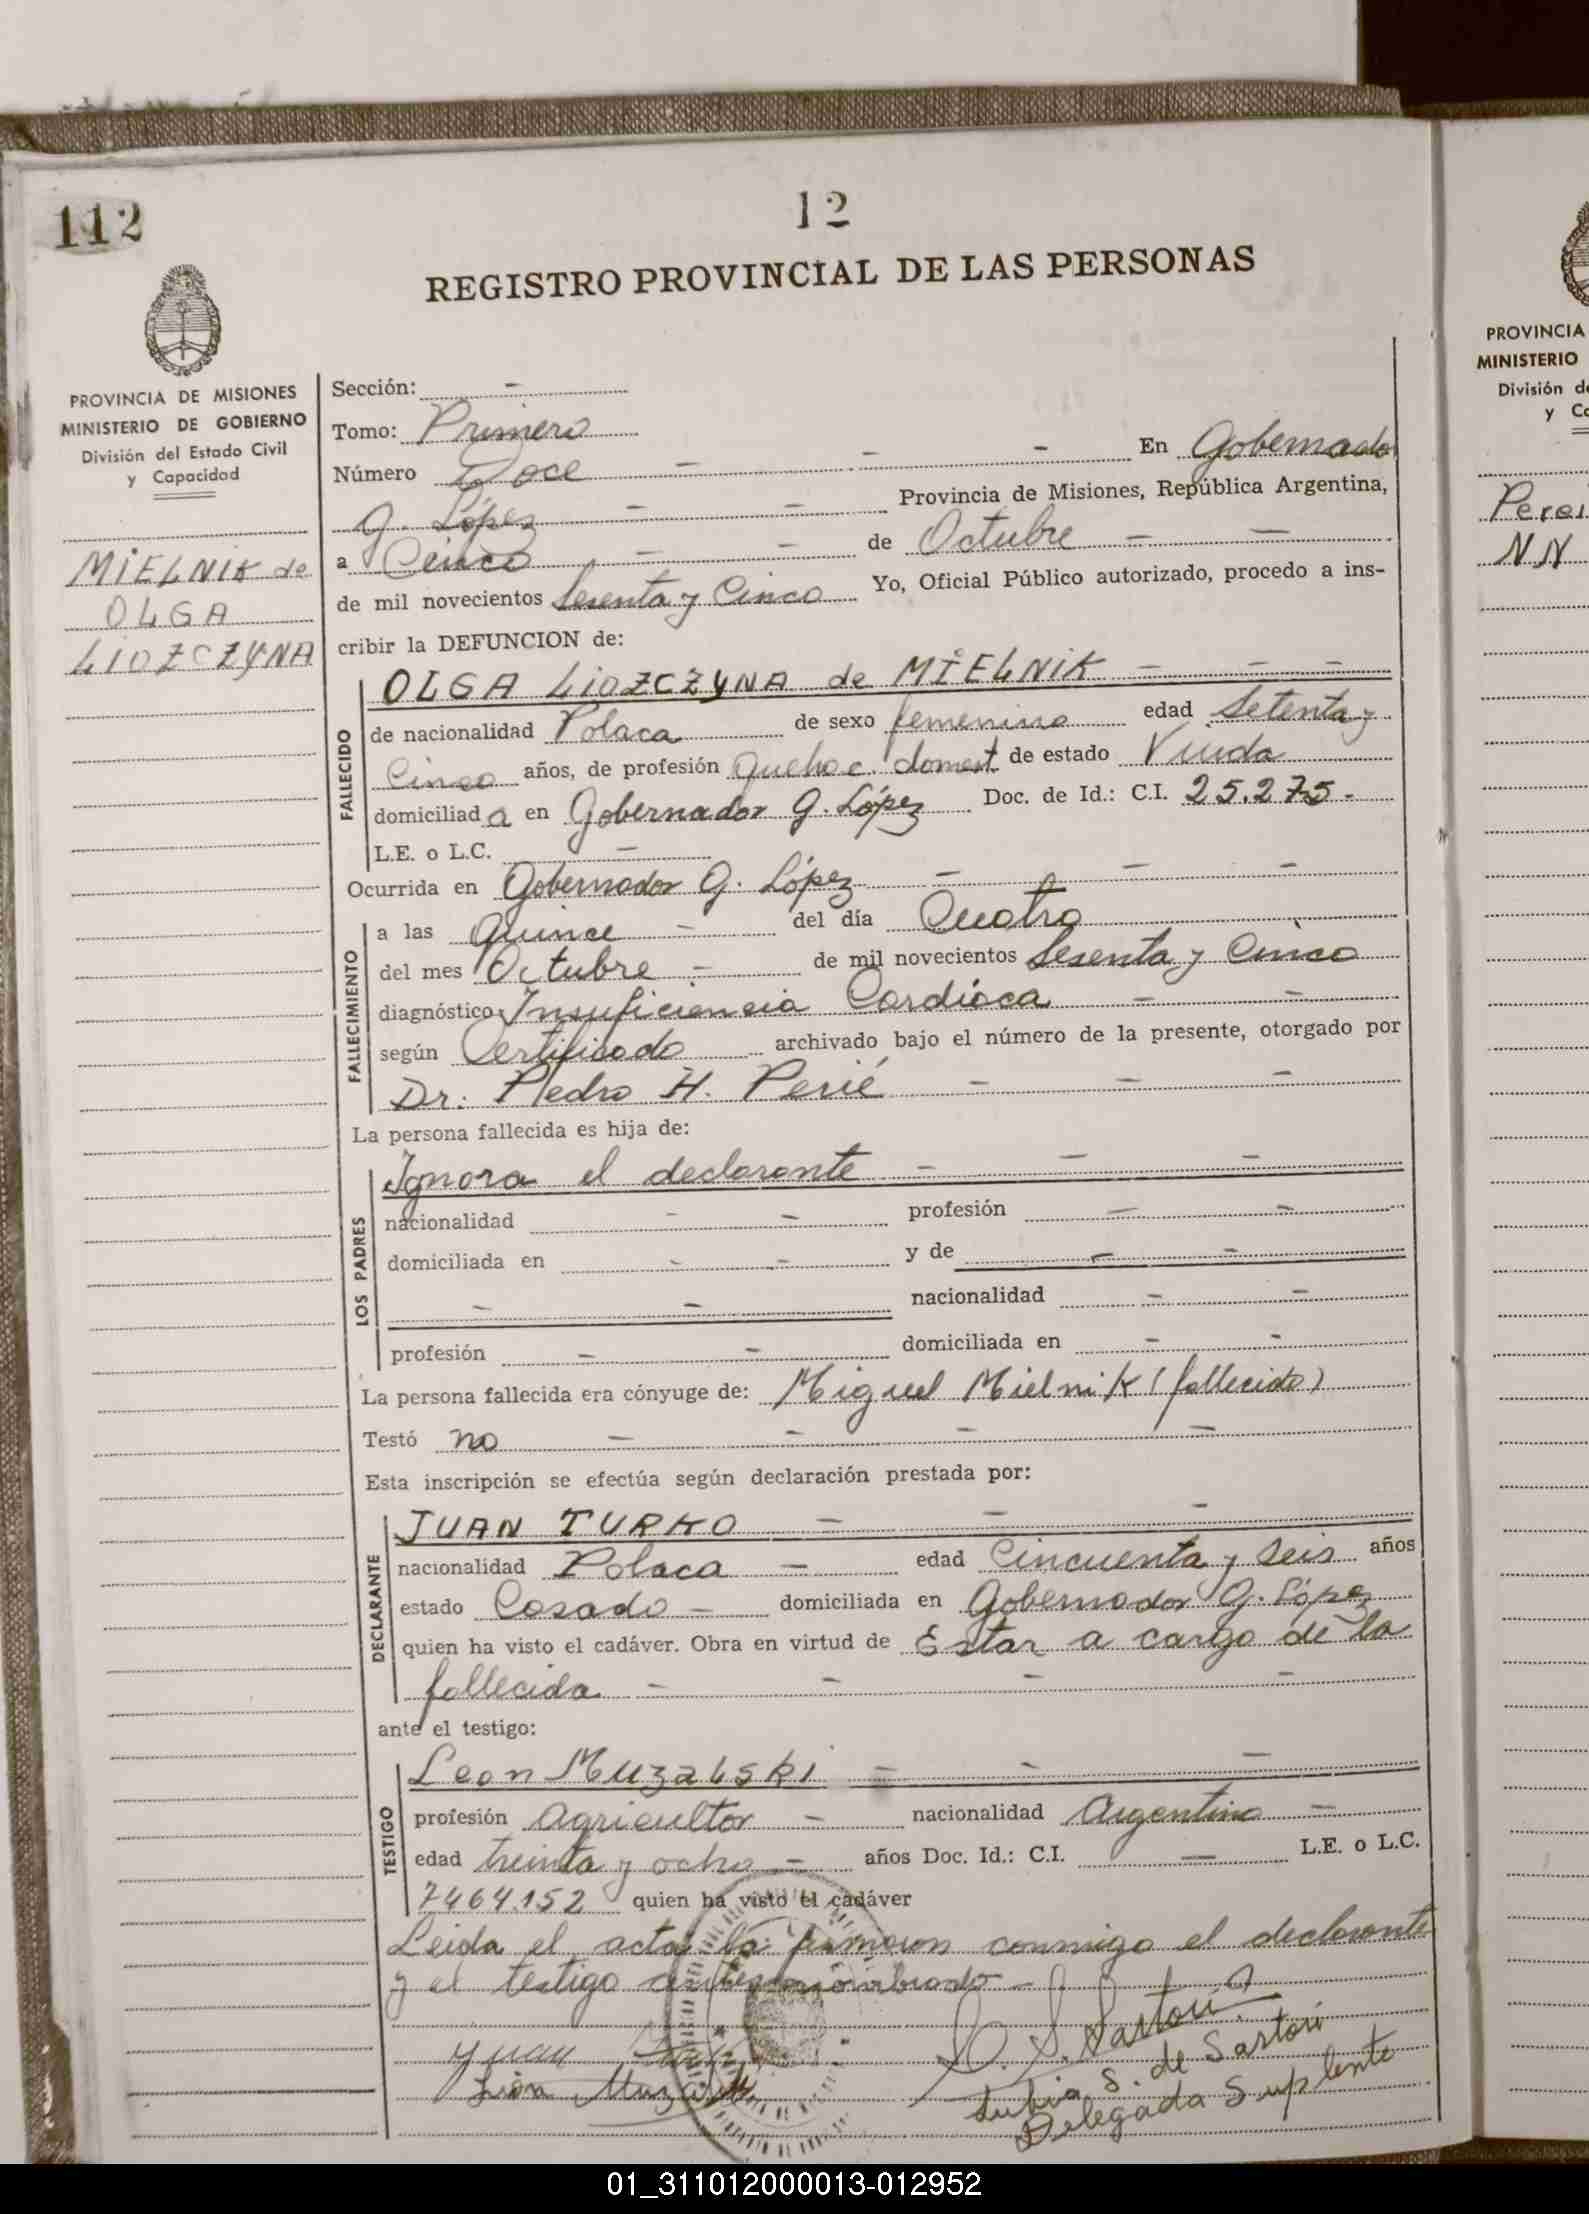 112
12
REGISTRO PROVINCIAL DE LAS PERSONAS
PROVINCIA DE MISIONES
MINISTERIO DE GOBIERNO
División del Estado Civil
y Capacidad
MIELNIK de
OLGA
LIOZCZYNA
Sección: -
Tomo: Primero
Número Doce - - - En Gobernador
G. López - - Provincia de Misiones, República Argentina,
a Cinco - - de Octubre - -
de mil novecientos Sesenta y Cinco Yo, Oficial Público autorizado, procedo a ins-
cribir la DEFUNCION de:
FALLECIDO
OLGA LIOZCZYNA de MIELNIK - - -
de nacionalidad Polaca de sexo femenino edad Setenta y
Cinco años, de profesión Quehac. domest. de estado Viuda
domiciliada en Gobernador G. López Doc. de Id.: C.I. 25.275.-
L.E. o L.C. -
Ocurrida en Gobernador G. López - - -
FALLECIMIENTO
a las quince - del día Cuatro
del mes Octubre - de mil novecientos Sesenta y Cinco
diagnóstico Insuficiencia Cardíaca - -
según Certificado archivado bajo el número de la presente, otorgado por
Dr. Pedro H. Perié - - -
La persona fallecida es hija de:
LOS PADRES
Ignora el declarante - - -
nacionalidad - - profesión - -
domiciliada en - - y de - -
- - nacionalidad - -
profesión - - domiciliada en - -
La persona fallecida era cónyuge de: Miguel Mielnik (fallecido)
Testó no - - - -
Esta inscripción se efectúa según declaración prestada por:
DECLARANTE
JUAN TURKO - - -
nacionalidad Polaca - edad Cincuenta y Seis años
estado Casado - domiciliada en Gobernador G. López
quien ha visto el cadáver. Obra en virtud de Estar a cargo de la
fallecida - - - -
ante el testigo:
TESTIGO
Leon Muzalski - - -
profesión agricultor - nacionalidad Argentina -
edad treinta y ocho - años Doc. Id.: C.I. - L.E. o L.C.
7464.152 quien ha visto el cadáver
Leída el acta la firman conmigo el declarante
y el testigo antes nombrado -
Juan
León
S. Sartori
S. de Sartori
Delegada Suplente
PROVINCIA
MINISTERIO
División d
y C
Perei
NN
01_311012000013-012952